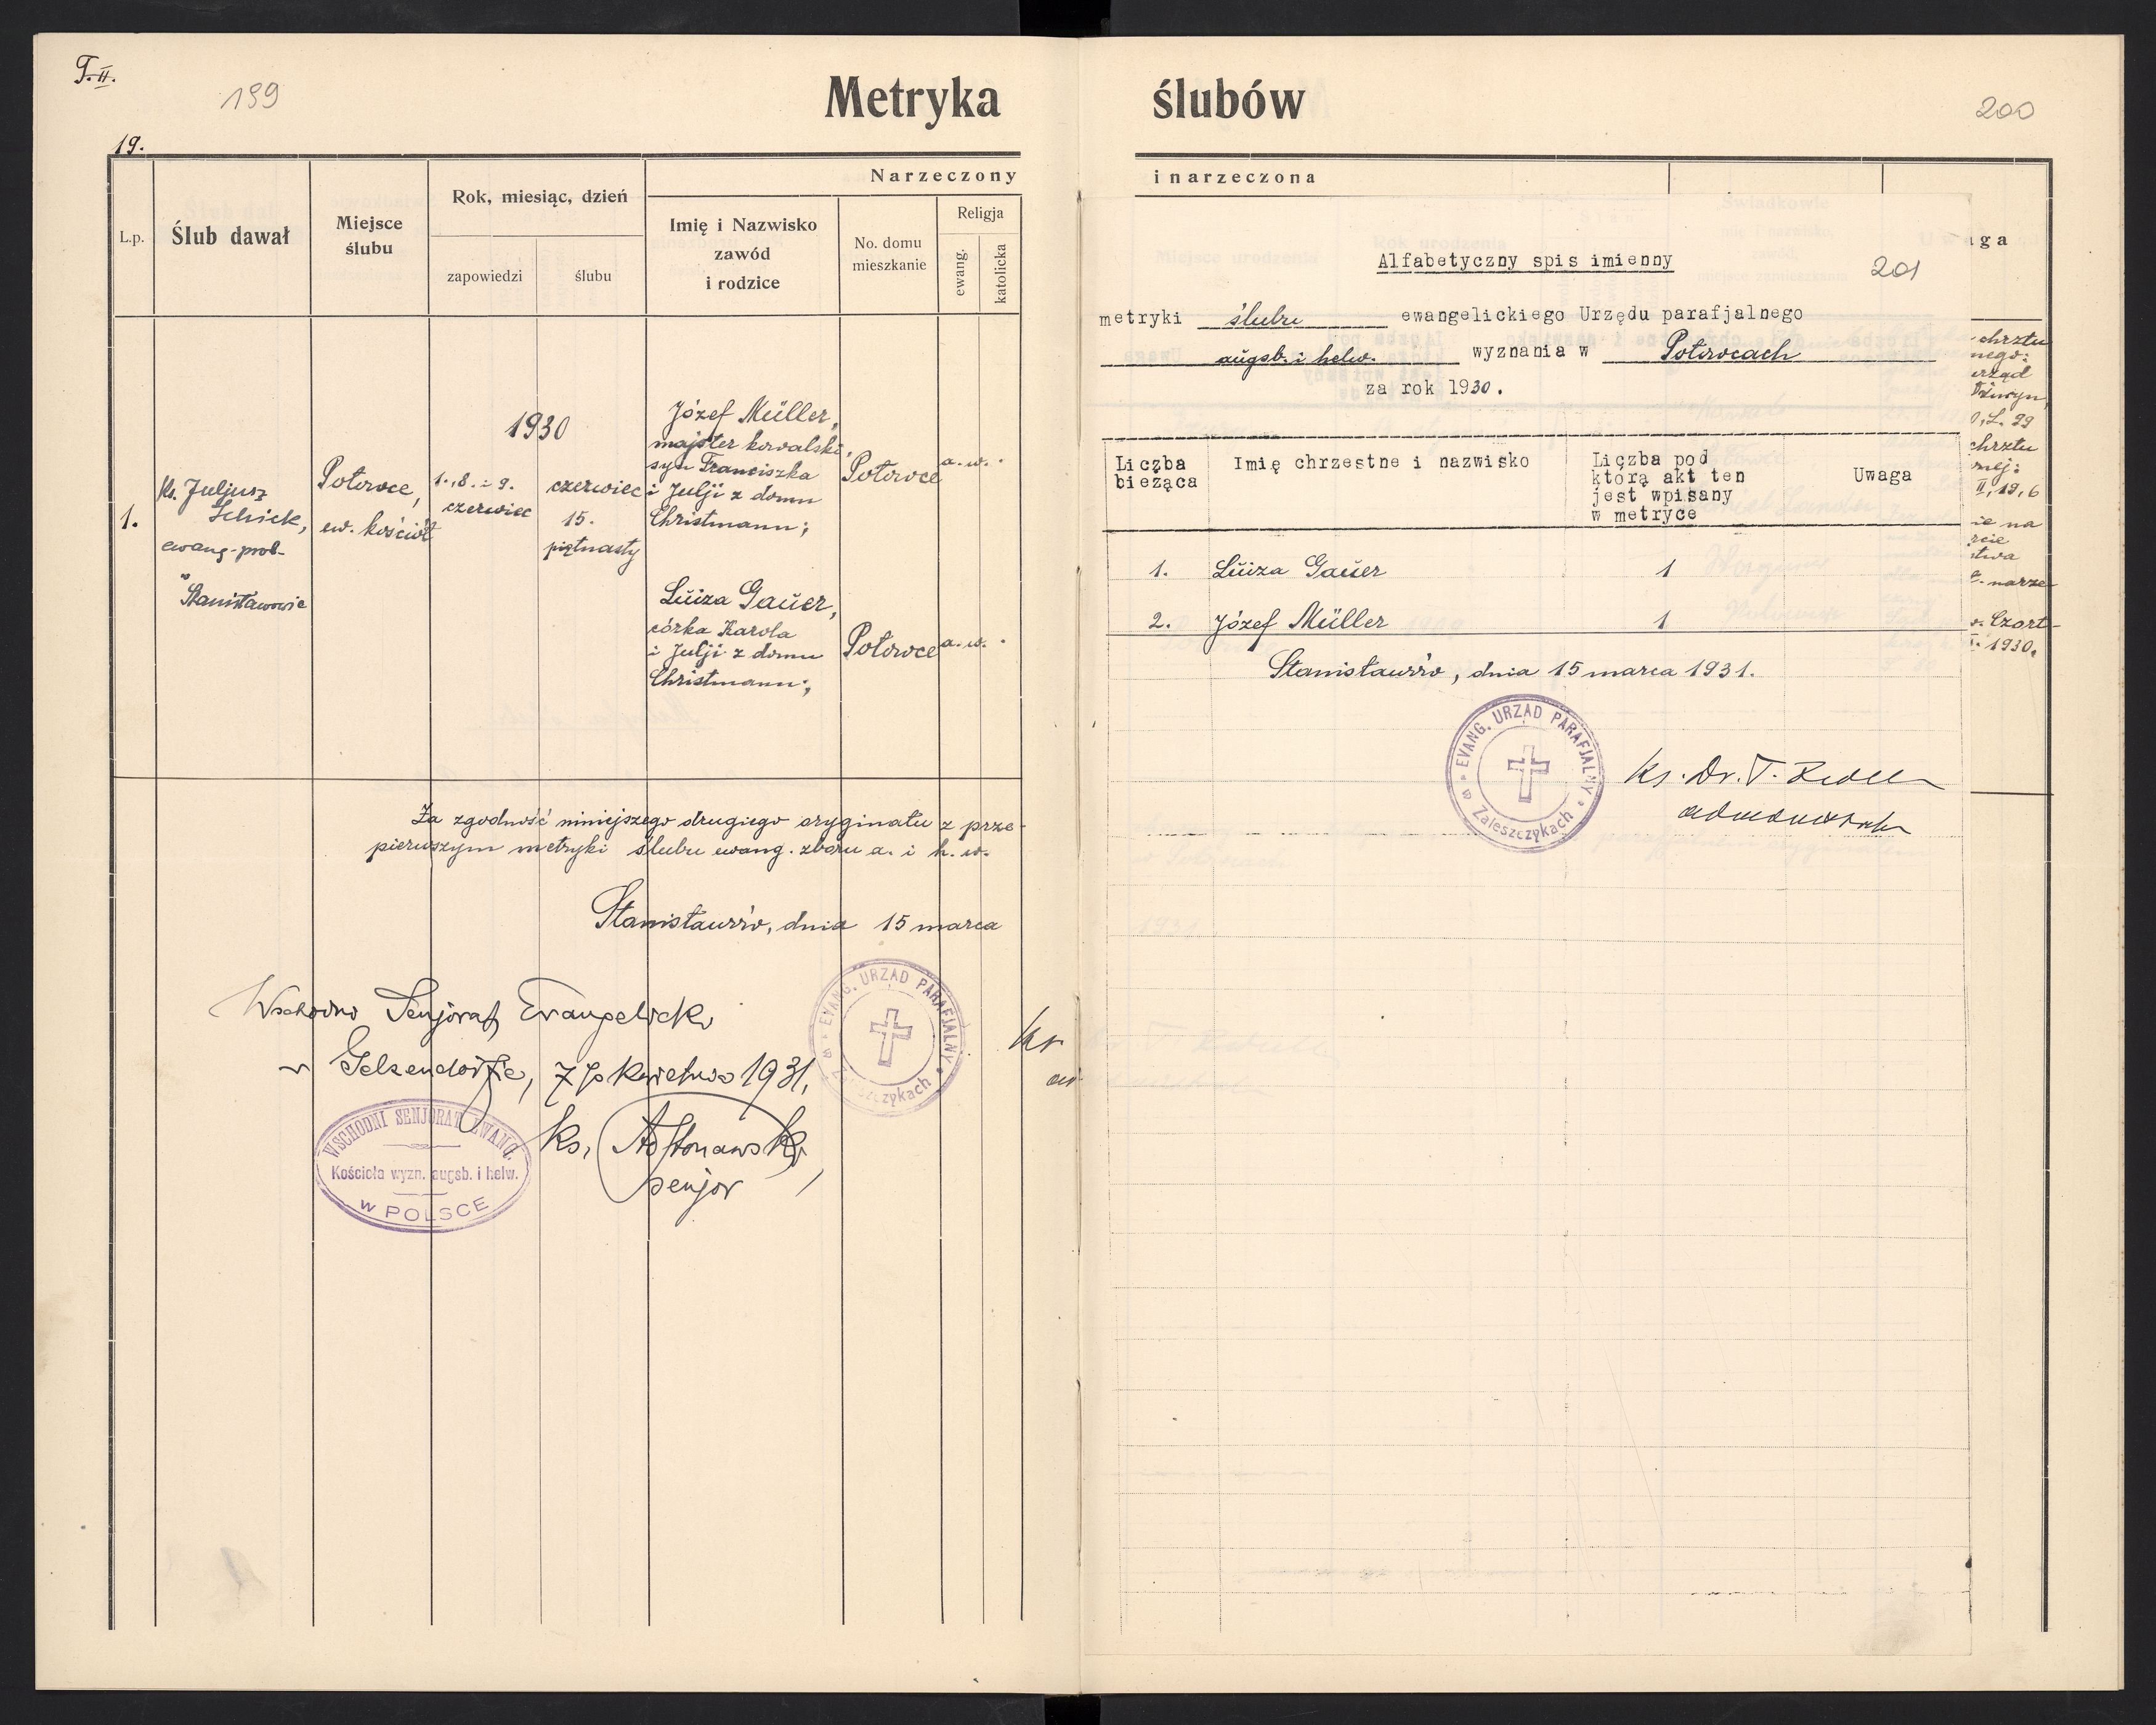 T. II.
199
Metryka ślubów
200
19.
L.p.
Ślub dawał
Miejsce
ślubu
Rok, miesiąc, dzień
zapowiedzi
ślubu
Narzeczony
Imię i Nazwisko
zawód
i rodzice
No. domu
mieszkanie
Religja
ewang.
katolicka
1.
Ks. Juljusz
Schick,
ewang. prob.
Stanisławowie
Potowce,
ew. kościół
1930
1., 8. i 9.
czerwiec
czerwiec
15.
piętnasty
Józef Müller,
majster kowalski,
syn Franciszka
i Julji z domu
Christmann;
Potowce
a. w.
Luiza Gauer,
córka Karola
i Julji z domu
Christmann;
Potowce
a. w.
Za zgodność niniejszego drugiego oryginału z prze-
pierwszym metryki ślubu ewang. zboru a. i h. w.
Stanisławów, dnia 15 marca
Wschodni Senjorat Evangelicki
w Gelsendorfie, 7go kwietnia 1931.
ks.
senjor
EVANG. URZĄD PARAFJALNY
WSCHODNI SENJORAT EWANG.
Kościoła wyzn. augsb. i helw.
w POLSCE
i narzeczona
aga
Alfabetyczny spis imienny
201
metryki ślubu ewangelickiego Urzędu parafjalnego
augsb. i helw. wyznania w Potowcach
za rok 1930.
Liczba
bieżąca
Imię chrzestne i nazwisko
Liczba pod
którą akt ten
jest wpisany
w metryce
Uwaga
1. Luiza Gauer 1
2. Józef Müller 1
Stanisławów, dnia 15 marca 1931.
EVANG. URZĄD PARAFJALNY
w Zaleszczykach
ks. Dr. T.
chrztu
nego:
chrztu
nej:
II, 19, 6
ie na
rcie
stwa
narze-
w. Czort-
1930.